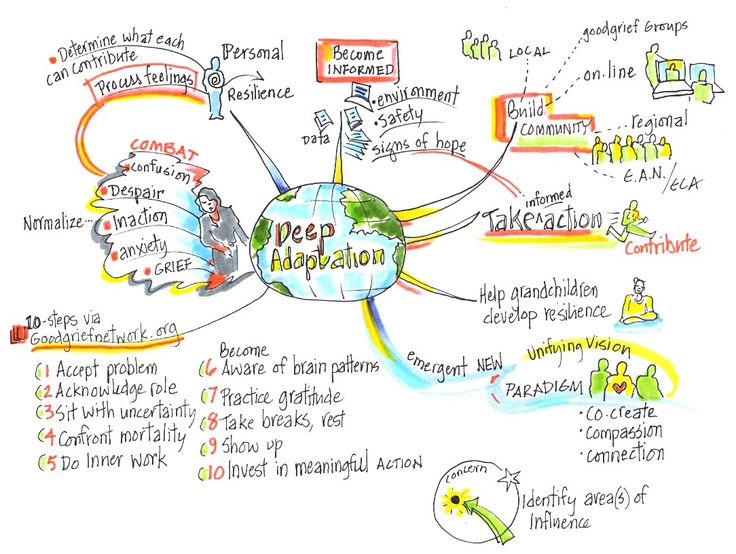 • Determine what each
can contribute
Process feelings
Personal
Resilience
COMBAT
Confusion
Despair
Normalize...
Inaction
anxiety
GRIEF
Become
INFORMED
DATA
• environment
• safety
signs of hope
LOCAL
goodgrief Groups
on.line
Build
COMMUNITY
regional
E.A.N./ECA
informed
Take^action
Contribute
Deep
Adaptation
Help grandchildren
develop resilience
emergent NEW
PARADIGM
Unifying Vision
• Co.create
• Compassion
• Connection
10-steps via
Goodgriefnetwork.org
1 Accept problem
2 Acknowledge role
3 Sit with uncertainty
4 Confront mortality
5 Do Inner Work
Become
6 Aware of brain patterns
7 Practice gratitude
8 Take breaks, rest
9 Show up
10 Invest in meaningful ACTION
Concern
Identify area(s) of
Influence